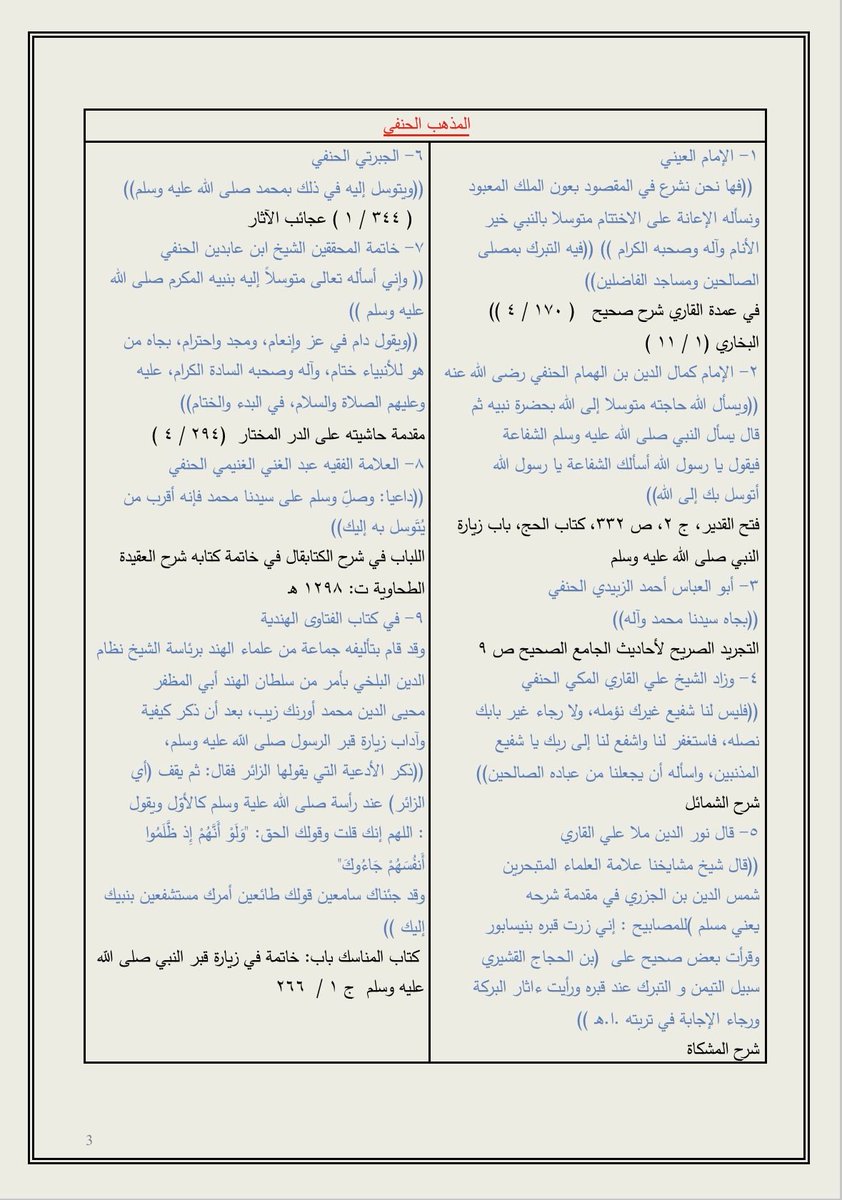 المذهب الحنفي
١- الإمام العيني
((فها نحن نشرع في المقصود بعون الملك المعبود
ونسأله الإعانة على الاختتام متوسلا بالنبي خير
الأنام وآله وصحبه الكرام )) ((فيه التبرك بمصلى
الصالحين ومساجد الفاضلين))
في عمدة القاري شرح صحيح ( ١٧٠ / ٤ ))
البخاري (١ / ١١ )
٢- الإمام كمال الدين بن الهمام الحنفي رضى الله عنه
((ويسأل الله حاجته متوسلا إلى الله بحضرة نبيه ثم
قال يسأل النبي صلى الله عليه وسلم الشفاعة
فيقول يا رسول الله أسألك الشفاعة يا رسول الله
أتوسل بك إلى الله))
فتح القدير، ج ٢، ص ٣٣٢، كتاب الحج، باب زيارة
النبي صلى الله عليه وسلم
٣- أبو العباس أحمد الزبيدي الحنفي
((بجاه سيدنا محمد وآله))
التجريد الصريح لأحاديث الجامع الصحيح ص ٩
٤- وزاد الشيخ علي القاري المكي الحنفي
((فليس لنا شفيع غيرك نؤمله، ولا رجاء غير بابك
نصله، فاستغفر لنا واشفع لنا إلى ربك يا شفيع
المذنبين، واسأله أن يجعلنا من عباده الصالحين))
شرح الشمائل
٥- قال نور الدين ملا علي القاري
((قال شيخ مشايخنا علامة العلماء المتبحرين
شمس الدين بن الجزري في مقدمة شرحه
يعني مسلم )للمصابيح : إني زرت قبره بنيسابور
وقرأت بعض صحيح على (بن الحجاج القشيري
سبيل التيمن و التبرك عند قبره ورأيت ءاثار البركة
ورجاء الإجابة في تربته .ا.هـ ))
شرح المشكاة
٦- الجبرتي الحنفي
((ويتوسل إليه في ذلك بمحمد صلى الله عليه وسلم))
( ٣٤٤ / ١ ) عجائب الآثار
٧- خاتمة المحققين الشيخ ابن عابدين الحنفي
(( وإني أسأله تعالى متوسلاً إليه بنبيه المكرم صلى الله
عليه وسلم ))
((ويقول دام في عز وإنعام، ومجد واحترام، بجاه من
هو للأنبياء ختام، وآله وصحبه السادة الكرام، عليه
وعليهم الصلاة والسلام، في البدء والختام))
مقدمة حاشيته على الدر المختار (٢٩٤ / ٤ )
٨- العلامة الفقيه عبد الغني الغنيمي الحنفي
((داعيا: وصلِّ وسلم على سيدنا محمد فإنه أقرب من
يُتَوسل به إليك))
اللباب في شرح الكتابقال في خاتمة كتابه شرح العقيدة
الطحاوية ت: ١٢٩٨ هـ
٩- في كتاب الفتاوى الهندية
وقد قام بتأليفه جماعة من علماء الهند برئاسة الشيخ نظام
الدين البلخي بأمر من سلطان الهند أبي المظفر
محيى الدين محمد أورنك زيب، بعد أن ذكر كيفية
وآداب زيارة قبر الرسول صلى الله عليه وسلم،
((ذكر الأدعية التي يقولها الزائر فقال: ثم يقف (أي
الزائر) عند رأسة صلى الله علية وسلم كالأوّل ويقول
: اللهم إنك قلت وقولك الحق: "وَلَوْ أَنَّهُمْ إِذ ظَّلَمُوا
أَنفُسَهُمْ جَاءُوكَ"
وقد جئناك سامعين قولك طائعين أمرك مستشفعين بنبيك
إليك ))
كتاب المناسك باب: خاتمة في زيارة قبر النبي صلى الله
عليه وسلم ج ١ / ٢٦٦
3